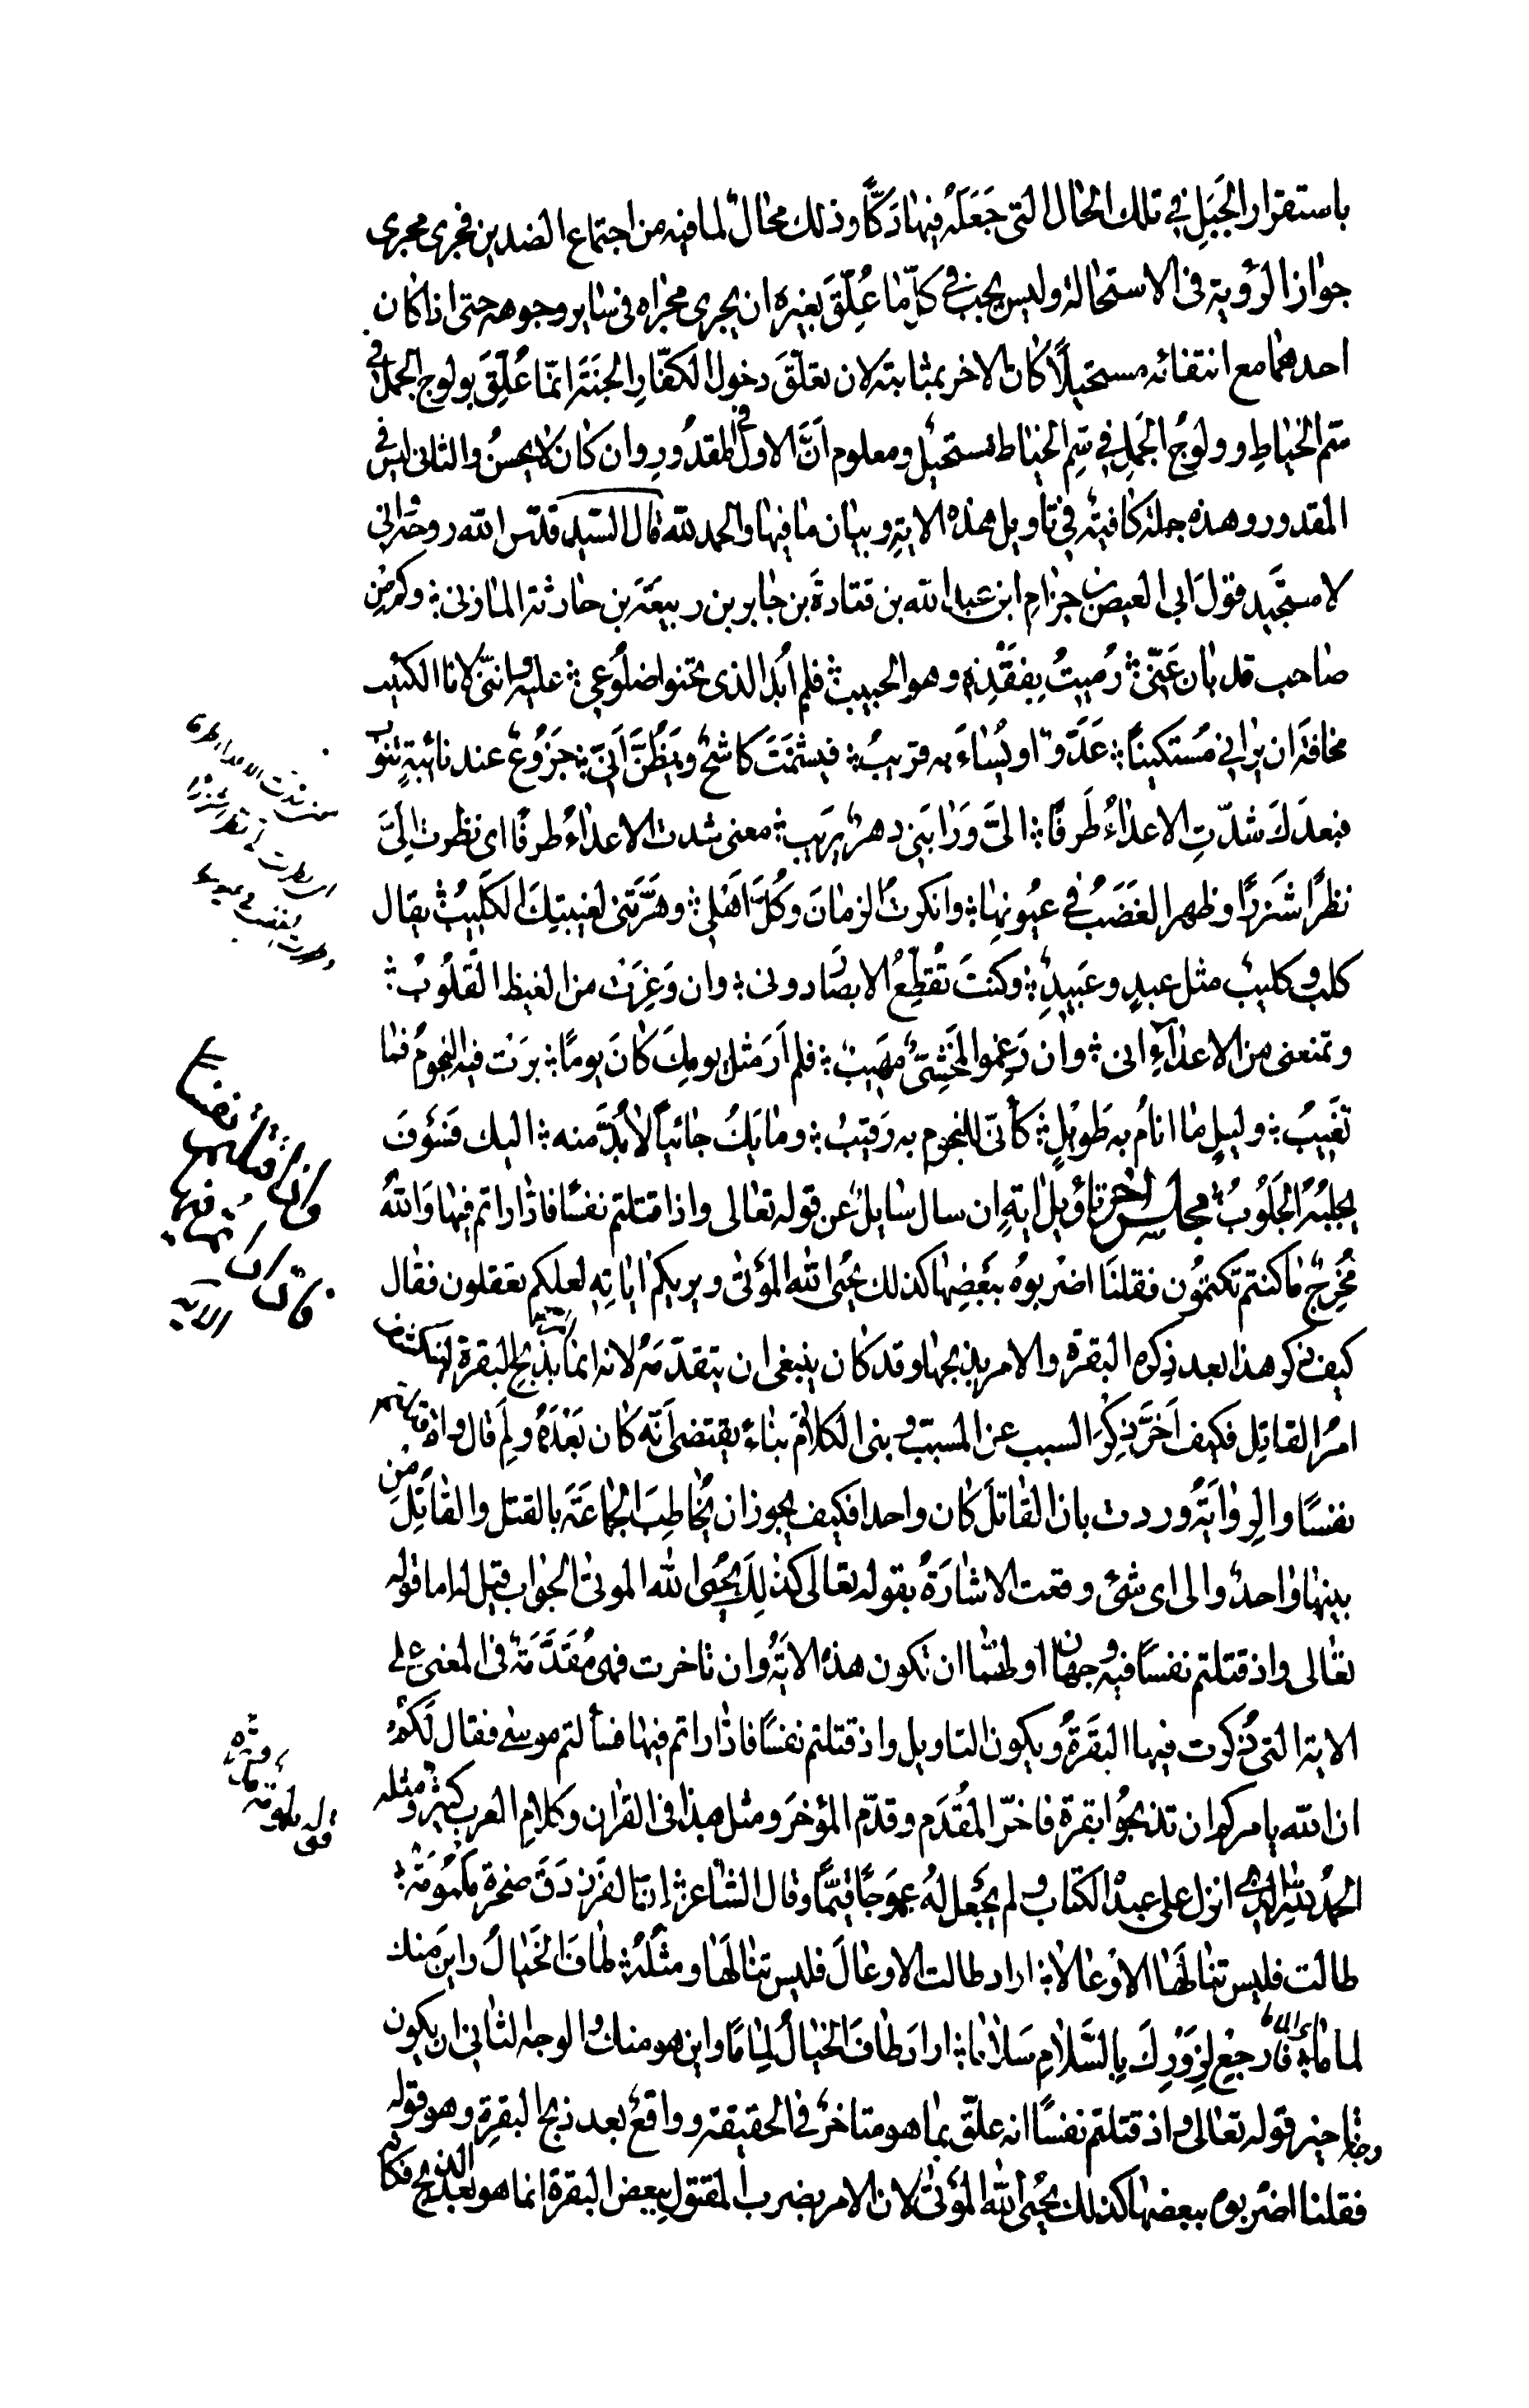 باستقرار الجَبَلِ في تلك الحال التي جَعَلَهُ فيها دَكًّا وذلك محالٌ لما فيه من اجتماع الضدين فجرى مجرى
جواز الرؤية في الاستحالة وليس يجب في كلّ ما عُلِّقَ بغيره ان يجرى مجراه في ساير وجوهه حتى اذا كان
احدهما مع انتفائه مستحيلاً كان الاخر بمثابته لان تعلّقَ دخول الكفّارِ الجنّةَ انمّا عُلِّقَ بولوج الجمل في
سّم الخياطِ وولوجُ الجمَلِ في سَمِ الخياط مستحيل ومعلوم انَّ الاول في المقدُورِ وان كان لا يحسنُ والثاني ليس في
المقدور وهذه جملة كافيةٌ في تاويل هذه الايةِ وبيان ما فيها والحمد لله قال السّيد قدّس الله روحه اني
لاستجيد قولَ ابي العيص بن حِزامِ ابن عبد الله بن قتادةَ بن جابر بن ربيعَة بن حارثة المازني ؞ وكم من
صاحب قد بان عَنّي ؞ رُميتُ بِفَقْدِه وهو الحبيب ؞ فلم اُبدِ الذي تحنوا ضلُوعي ؞ عليه وانّي لانا الكئيب
مخافةَ ان يراني مُستكيناً ؞ عَدُوٌّ او يُساءَ به قريبُ ؞ فيشمَتَ كاشحٌ ويَظُنَّ اَنّي ؞ جَزُوعٌ عند نائبةٍ تنوب
فبعدَكَ شدّتِ الاعداءُ طَرفًا ؞ اليَّ وَرَابَني دهرٌ يَريب ؞ معنى شدت الاعداءُ طرفًا اى نظرت الِىَّ
نظرًا شَزرًا وظهر الغَضَبُ في عيُونِها ؞ وانكرتُ الزمانَ وكُلَّ اَهْلي ؞ وهَرَّتني لغيبتِكَ الكَليبُ ؞ يقال
كلب وكليب مثل عبدٍ وعَبيدٍ ؞ وكنتَ تُقطِّعُ الابصَارَ دونى ؞ وان وَغِرَت من الغيظ القَلُوبُ ؞
وتمنعنى من الاعداءِ انى ؞ وان رَغِموا لمَخْشِيٌّ مَهيبٌ ؞ فلم اَرَ مثل يومِكَ كانَ يومًا ؞ بَرَت فيه النجومُ فما
تَغيبُ ؞ وليلٍ ما انامُ به طَويلٍ ؞ كأنّى للنجوم به رَقيبُ ؞ وما يَكُ جائياً لابُدَّ منه ؞ اليك فسَوْفَ
يجلبُهُ الجَلُوبُ ؞ مجلس اخر تاؤيل ايةٍ ان سال سايلٌ عن قوله تعالى واذ قتلتم نفسًا فادّاراتم فيها وَاللهُ
مُخرِجٌ ما كنتم تكتمُون فقلنَا اضْربوُه ببَعضِها كذلك يُحيى اللهُ المَوْتٰى ويريكم اٰياتِهِ لعلكم تعقلون فقال
كيف ذكر هذا بعد ذِكرهِ البقرة والامر بذبحها وقد كان ينبغى ان يتقدّمَهُ لانه انما بذبح البقرة لينكشف
امرُ القاتِل فكيف اَخرَّ ذِكرَ السبب عن المسبّب وبنى الكلامَ بناءً يقتضى اَنّه كان بَعْدَهُ ولِمَ قال واذ قتلتم
نفسًا والرِوايَةُ وردت بان القاتلَ كان واحدا فكيف يجوز ان يُخاطِبَ الجماعَةَ بالقتل والقاتِلُ مِن
بينها واحدٌ والى اى شئٍ وقعت الاشارَةُ بقوله تعالى كذلِكَ يُحيى الله الموتى الجواب قيل له اما قوله
تعالى واذ قتلتم نفسًا فيه وجهان اولهما ان تكون هذهِ الايَةُ وان تاخرت فهى مُقَدَّمَةٌ فى المعنى على
الاية التى ذُكرت فيها البقَرةُ ويكون التاويل واذ قتلتم نفسًا فادّاراتم فيها فسألتم موسى فقال لَكُم
ان الله يامركم ان تذبحُوا بقرة فاخرّ المُقدَم وقدّم المؤخرَ ومثل هذا فى القران وكلامِ العرب كثيرٌ ومثله
الحمدُ للهِ الذي انزل على عبدهِ الكتاب ولم يَجْعل لهُ عِوَجًا قيّمًا وقال الشاعر ؞ انّ الفرزدَقَ صخرة مَلْمُومَةٌ ؞
طالت فليس تنالَها الاوْعالا ؞ اراد طالت الاوعالَ فليس تنالَها ومثْلُهُ ؞ طافَ الخَيالُ واينَ منك
لماما ؞ فارجِعْ لِزَوْرِكَ بالسَّلامِ سَلاما ؞ ارادَ طافَ الخيالُ لِمامًا واين هو منك والوجه الثاني ان يكون
وجه تاخير قوله تعالى واذ قتلتم نفسًا انه علّق بما هو متاخرٌ في الحقيقة وواقعٌ بعد ذبح البقرةِ وهو قوله
فقلنا اضربوه ببعضها كذلك يُحيى اللهُ المَوْتٰى لان الامر بضرب المقتولِ ببعض البقرة انما هو بعد الذبح فكانه
واذ قتلتم نفسا
فادّاراتم فيها
الاية